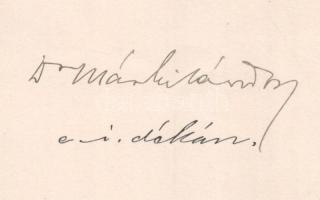 Dr Márki Sándor
e. i. dékán.